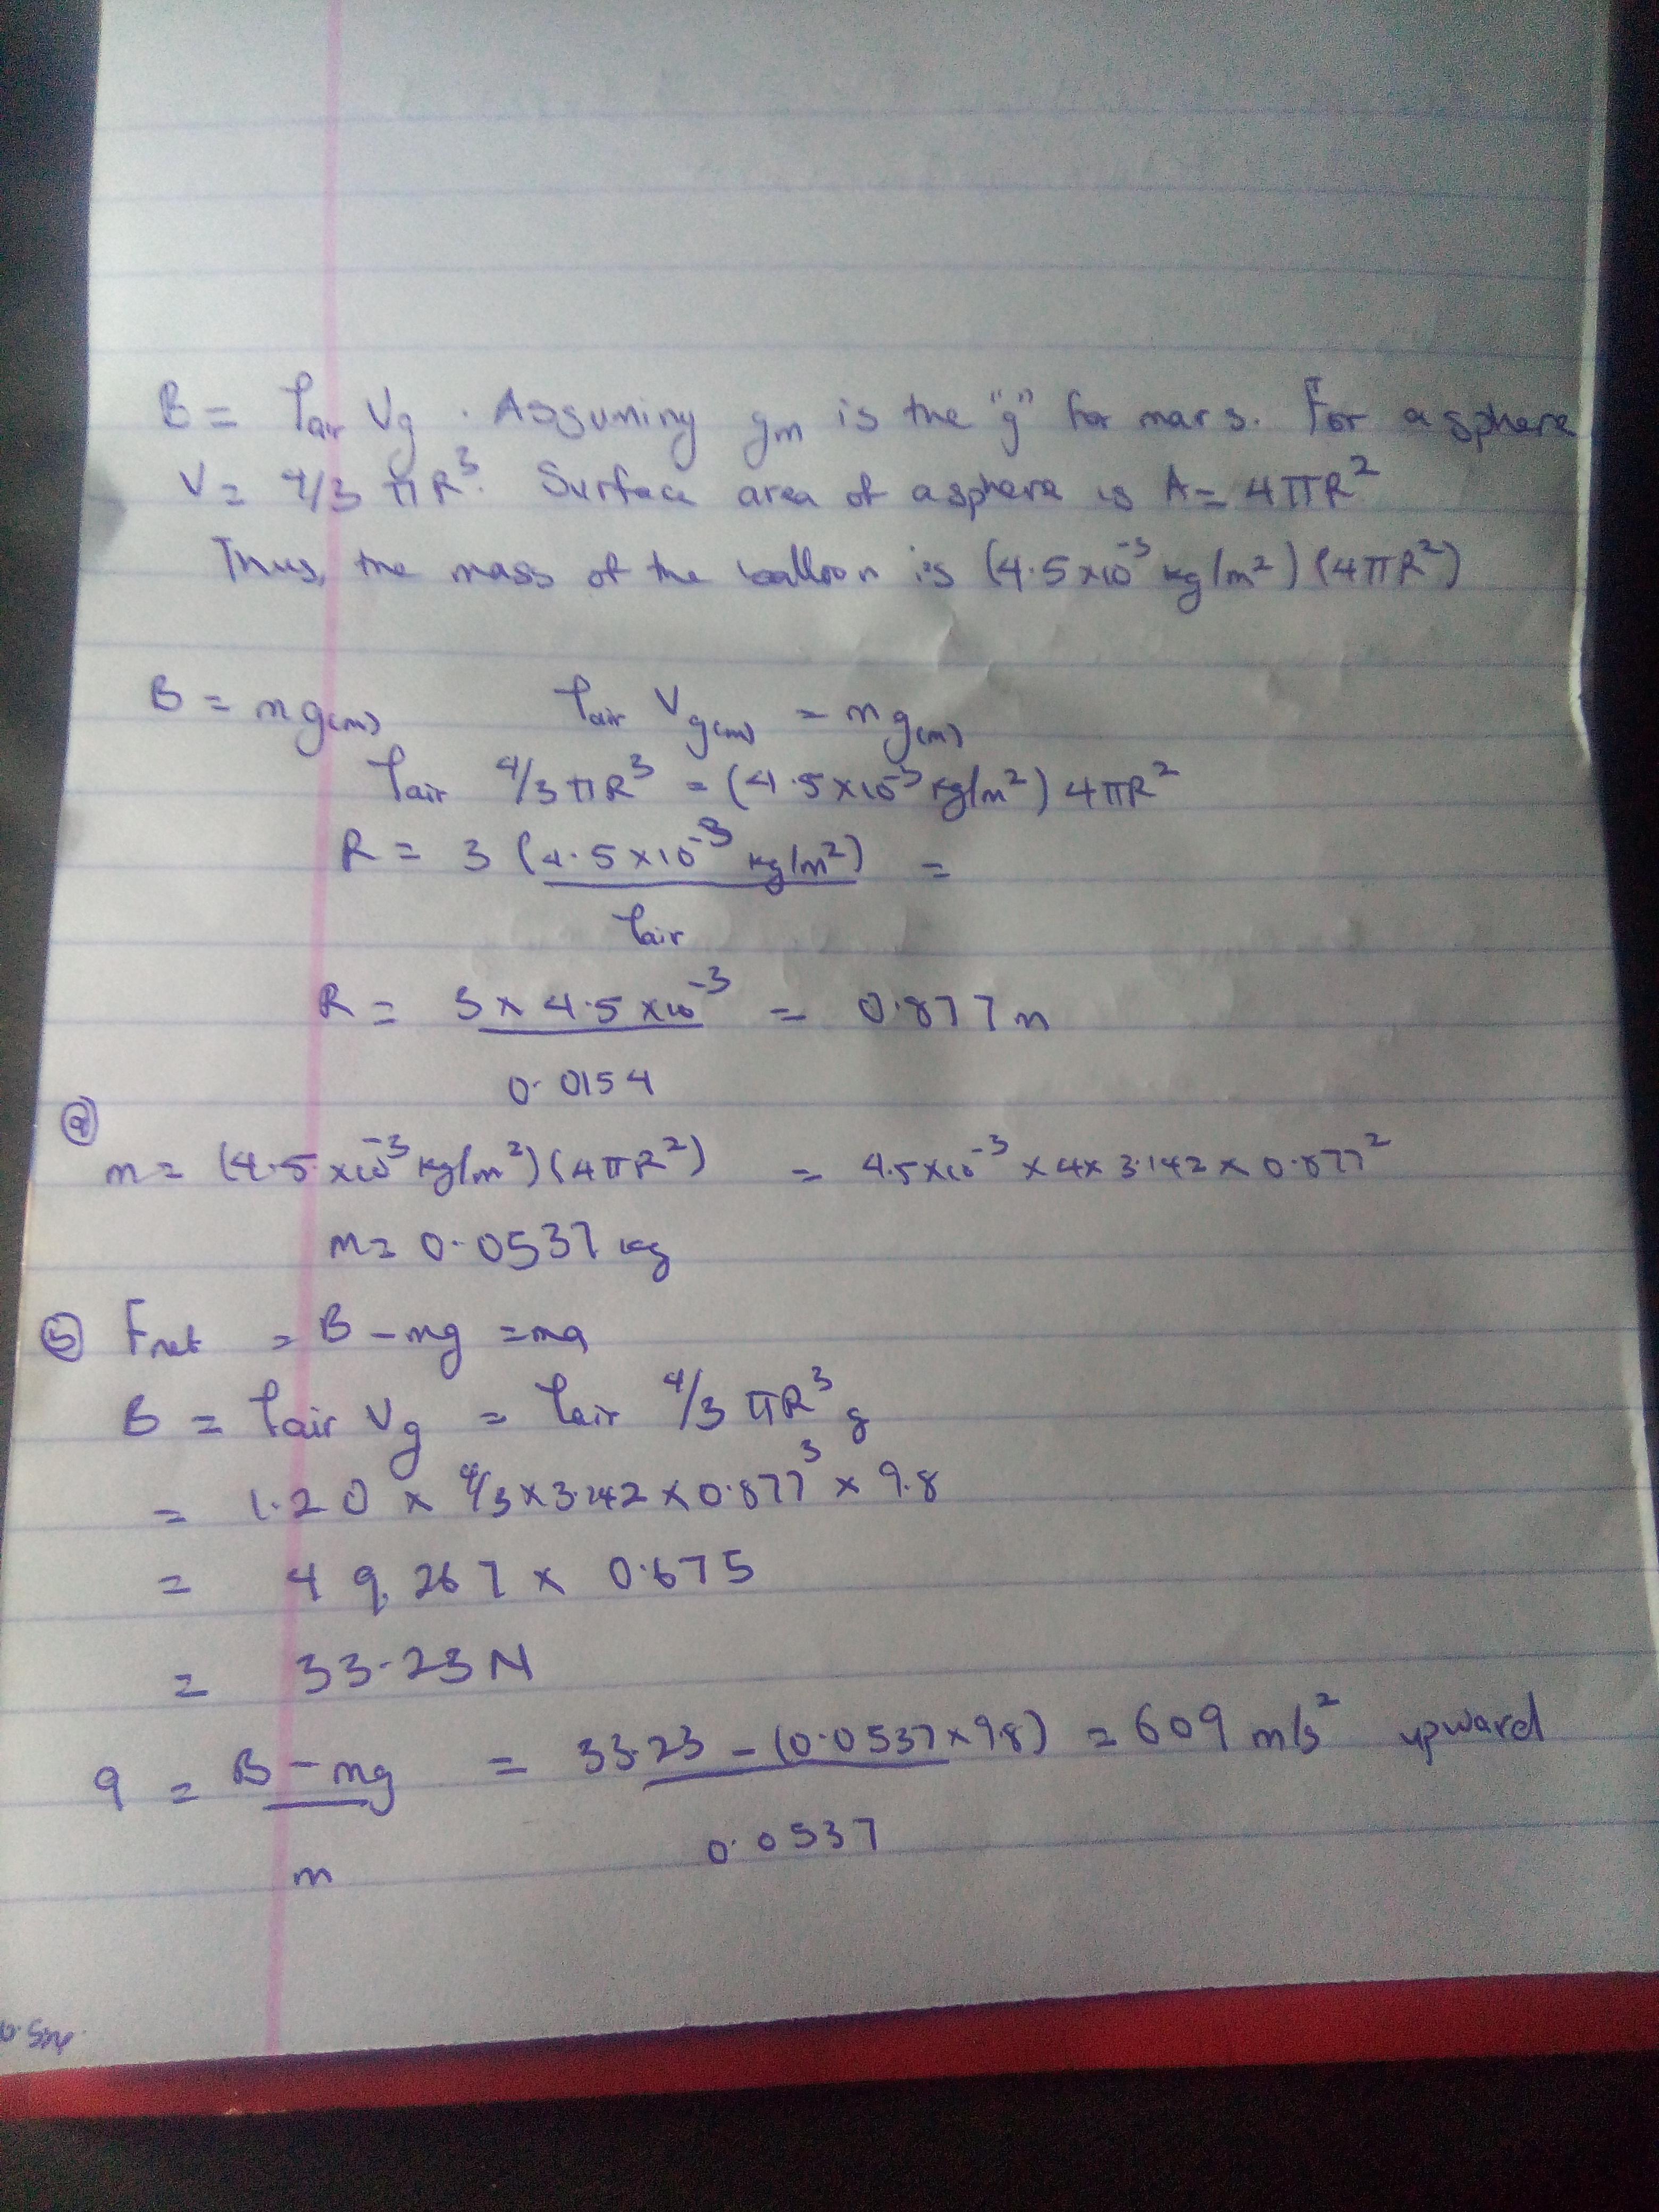 B = ρair Vg . Assuming gm is the "g" for mars. For a sphere
V = 4/3 πR³. Surface area of a sphere is A = 4πR²
Thus, the mass of the balloon is (4.5×10⁻³ kg/m²) (4πR²)
B = mg(m) ρair Vg(m) = mg(m)
ρair 4/3 πR³ = (4.5×10⁻³ kg/m²) 4πR²
R = 3 (4.5×10⁻³ kg/m²) =
ρair
R = 3 × 4.5 ×10⁻³ = 0.877 m
0.0154
(a)
m = (4.5 ×10⁻³ kg/m²)(4πR²) = 4.5×10⁻³ × 4× 3.142 × 0.877²
m = 0.0537 kg
(b) Fnet = B - mg = ma
B = ρair Vg = ρair 4/3 πR³ g
= 1.20 × 4/3 × 3.142 × 0.877³ × 9.8
= 49.267 × 0.675
= 33.23 N
a = B - mg = 33.23 - (0.0537 × 9.8) = 609 m/s² upward
m 0.0537